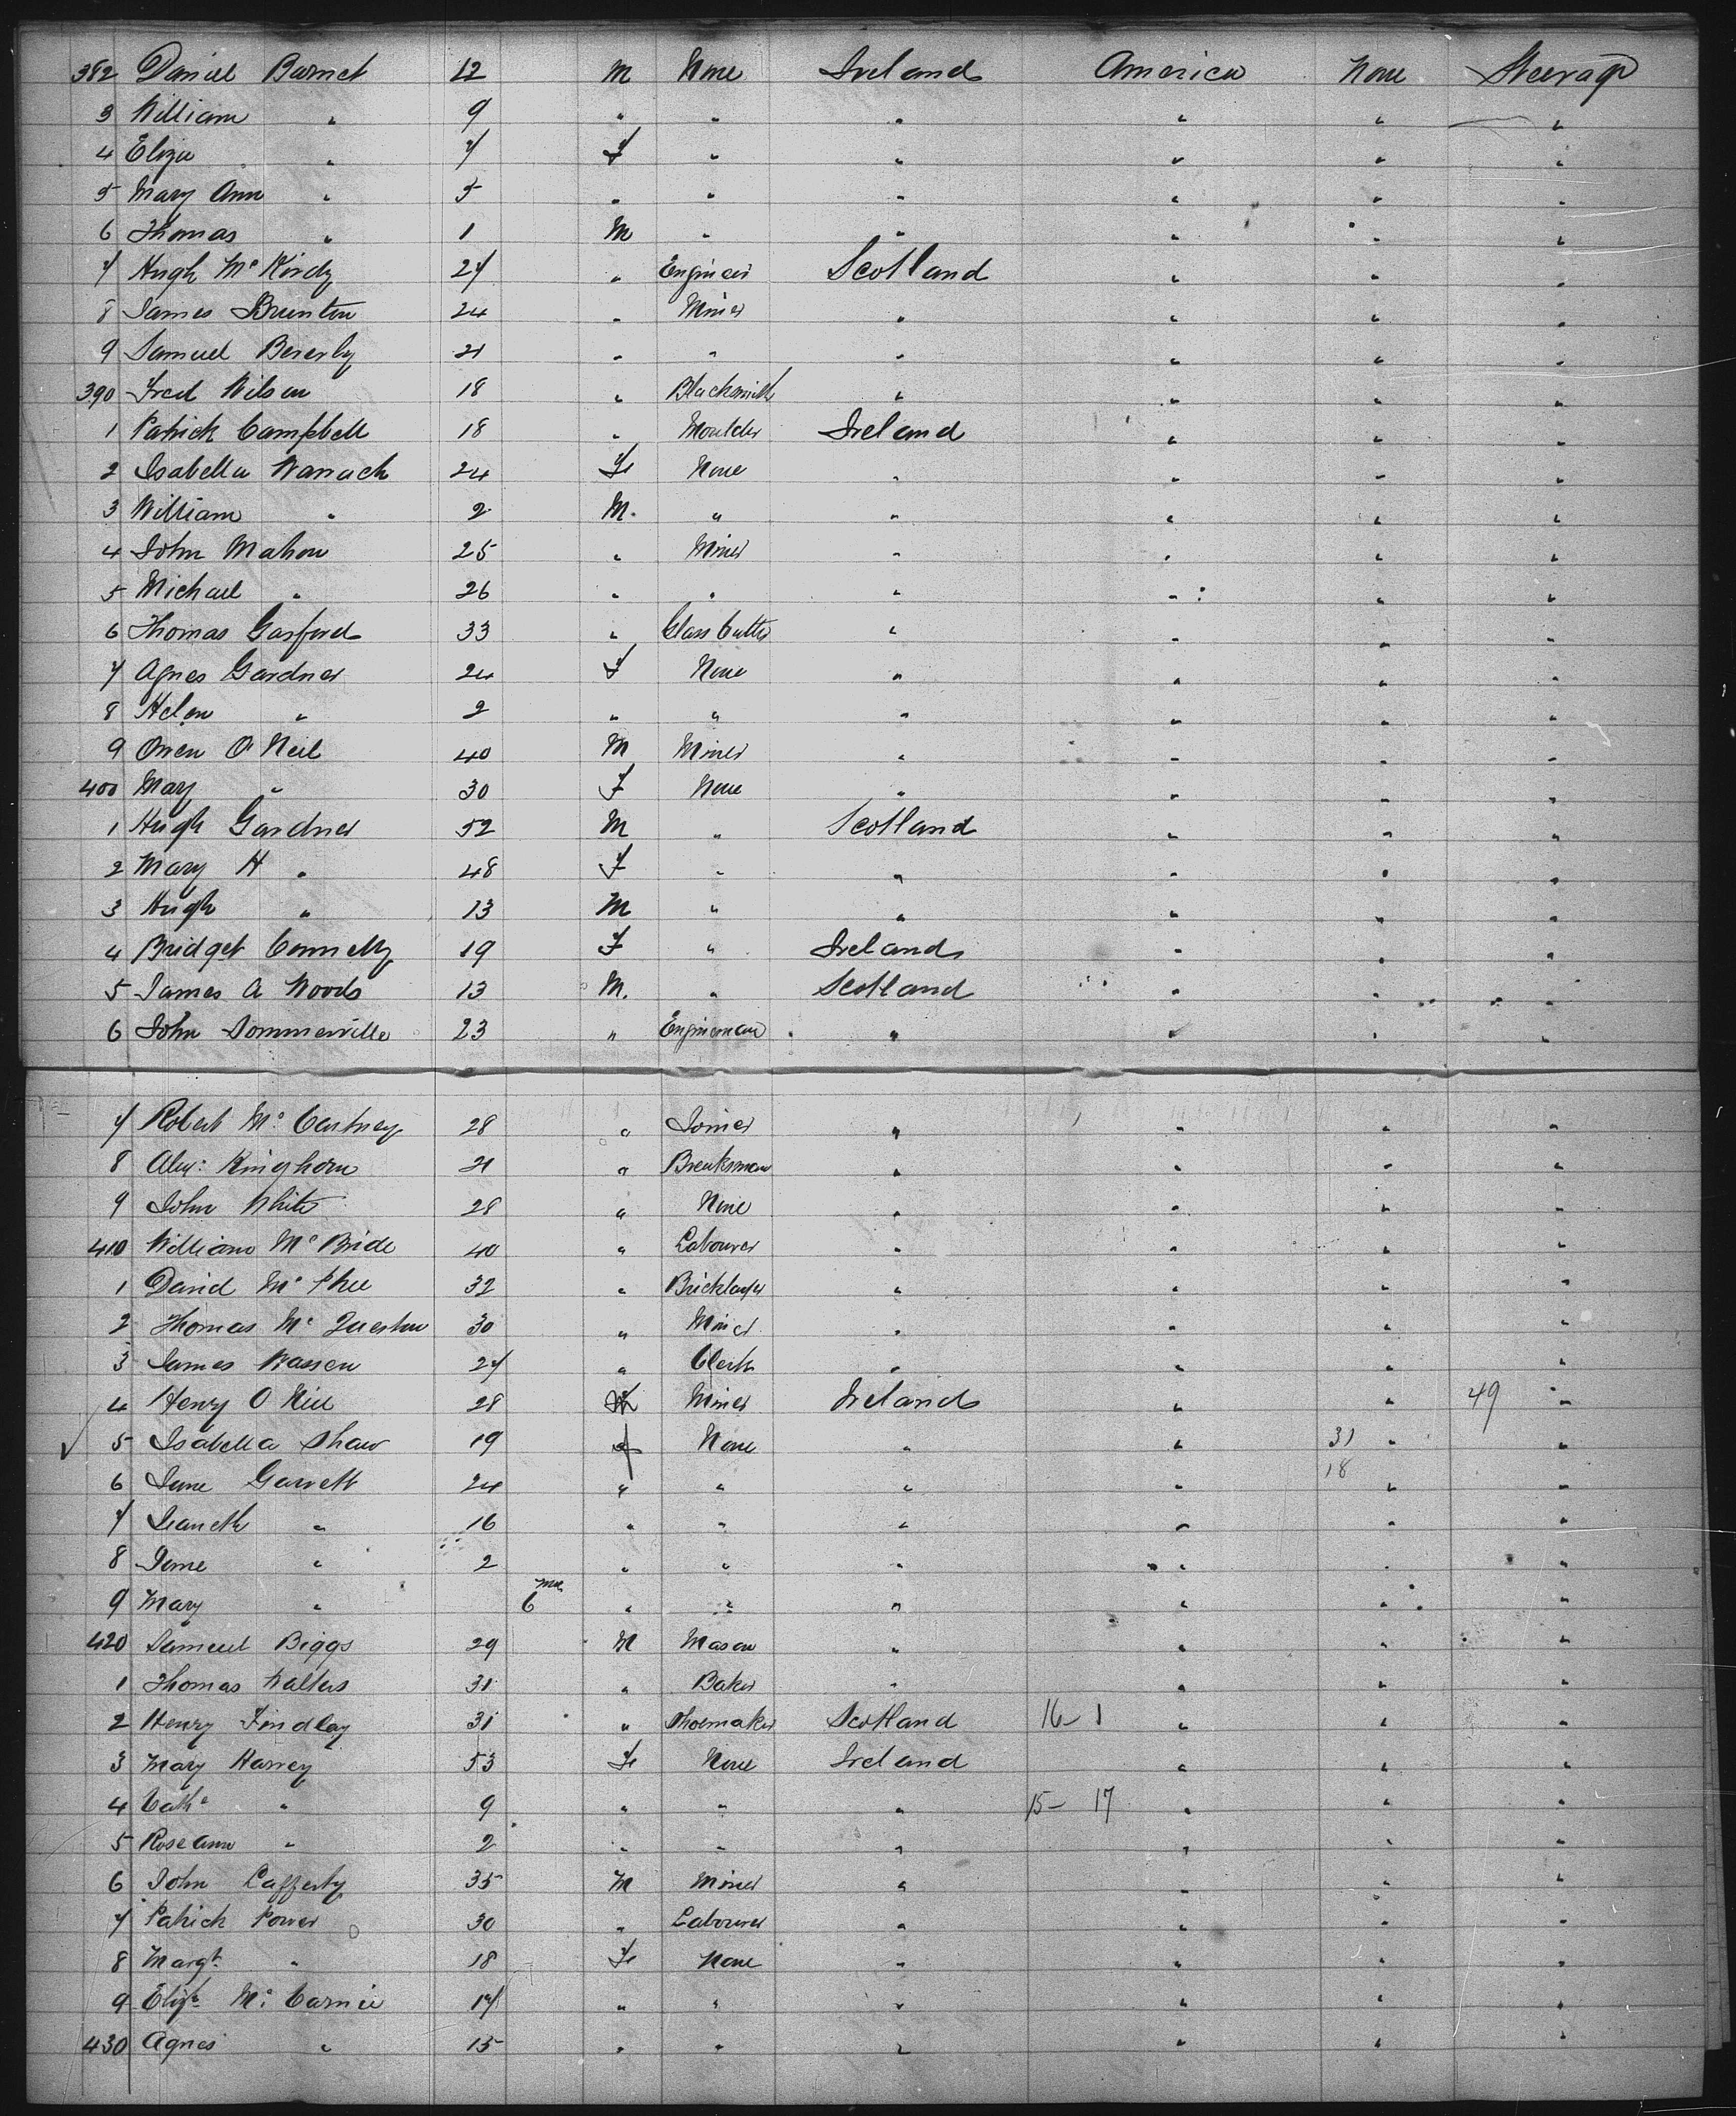 382 Daniel Barnet 12 M None Ireland America None Steerage
3 William " 9 " " " " " "
4 Eliza " 7 F " " " " "
5 Mary Ann " 5 " " " " " "
6 Thomas " 1 M " " " " "
7 Hugh Mc Kirdy 27 " Engineer Scotland " " "
8 James Brunton 24 " Miner " " " "
9 Samuel Beverly 21 " " " " " "
390 Fred Wilson 18 " Blacksmith " " " "
1 Patrick Campbell 18 " Moulder Ireland " " "
2 Isabella Warrack 24 Fe None " " " "
3 William " 2 M. " " " " "
4 John Mahon 25 " Miner " " " "
5 Michael " 26 " " " " " "
6 Thomas Gasford 33 " Glass Cutter " " " "
7 Agnes Gardner 24 F None " " " "
8 Helen " 2 " " " " " "
9 Owen O'Neil 40 M Miner " " " "
400 Mary " 30 F None " " " "
1 Hugh Gardner 52 M " Scotland " " "
2 Mary H " 48 F " " " " "
3 Hugh " 13 M " " " " "
4 Bridget Connelly 19 F " Ireland " " "
5 James A Woods 13 M. " Scotland " " "
6 John Sommerville 23 " Engineman " " " "
7 Robert Mc Cartney 28 " Joiner " " " "
8 Alex: Kinghorn 21 " Breaksman " " " "
9 John White 28 " None " " " "
410 William Mc Bride 40 " Labourer " " " "
1 David Mc Phee 32 " Bricklayer " " " "
2 Thomas Mc Question 30 " Miner " " " "
3 James Warren 27 " Clerk " " " "
4 Henry O Neil 28 M Miner Ireland " " 49 "
5 Isabella Shaw 19 f None " " 31 " "
6 Jane Garrett 24 " " " " 18 " "
7 " 16 " " " " " "
8 Jane " 2 " " " " " "
9 Mary " 6 mo " " " " " "
420 Samuel Biggs 29 M Mason " " " "
1 Thomas Walters 31 " Baker " " " "
2 Henry Findlay 31 " Shoemaker Scotland 16-1 " " "
3 Mary Harvey 53 Fe None Ireland " " "
4 Cathe " 9 " " " 15-17 " " "
5 Rose ann " 2 " " " " " "
6 John Lafferty 35 M Miner " " " "
7 Patrick Power 30 " Labourer " " " "
8 Margt " 18 Fe None " " " "
9 Elizh Mc Carnie 17 " " " " " "
430 Agnes " 15 " " " " " "